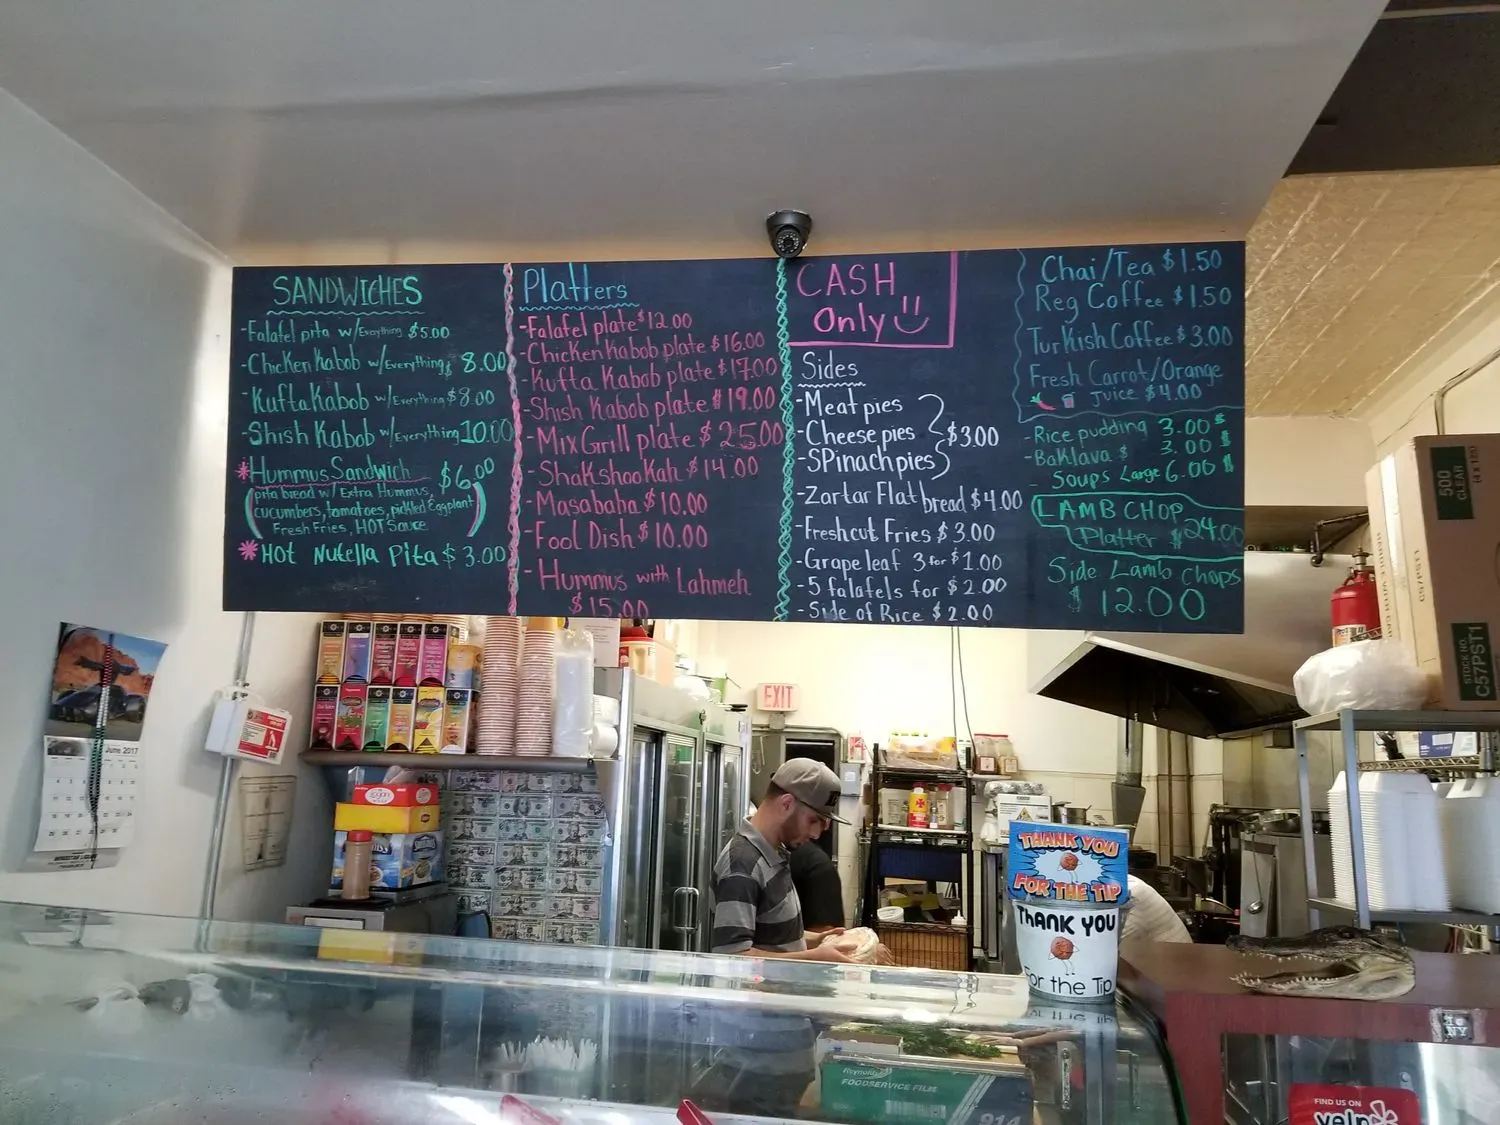 SANDWICHES
-Falafel pita w/Everything $5.00
-Chicken Kabob w/Everything $ 8.00
-Kufta Kabob w/Everything $8.00
-Shish Kabob w/Everything 10.00
*Hummus Sandwich $6.00
(pita bread w/ Extra Hummus,
cucumbers, tomatoes, pickled Eggplant
Fresh Fries, HOT Sauce)
*HOT Nutella Pita $3.00
Platters
-Falafel plate $12.00
-Chicken Kabob plate $16.00
-Kufta Kabob plate $17.00
-Shish Kabob plate $19.00
-Mix Grill plate $25.00
-Shakshookah $14.00
-Masabaha $10.00
-Fool Dish $10.00
-Hummus with Lahmeh
$15.00
CASH
Only
Sides
-Meat pies
-Cheese pies } $3.00
-SPinach pies
-Zartar Flat bread $4.00
-Freshcut Fries $3.00
-Grape leaf 3 for $1.00
-5 falafels for $2.00
-Side of Rice $2.00
Chai/Tea $1.50
Reg Coffee $1.50
Turkish Coffee $3.00
Fresh Carrot/Orange
Juice $4.00
-Rice pudding 3.00 $
-Baklava $ 3.00 $
- Soups Large 6.00 $
LAMB CHOP
Platter $24.00
Side Lamb Chops
$12.00
June 2017
EXIT
500
CLEAR
STOCK NO.
C57PST1
THANK YOU
FOR THE TIP
THANK YOU
For the Tip
Reynolds
FOODSERVICE FILM
914
FIND US ON
yelp